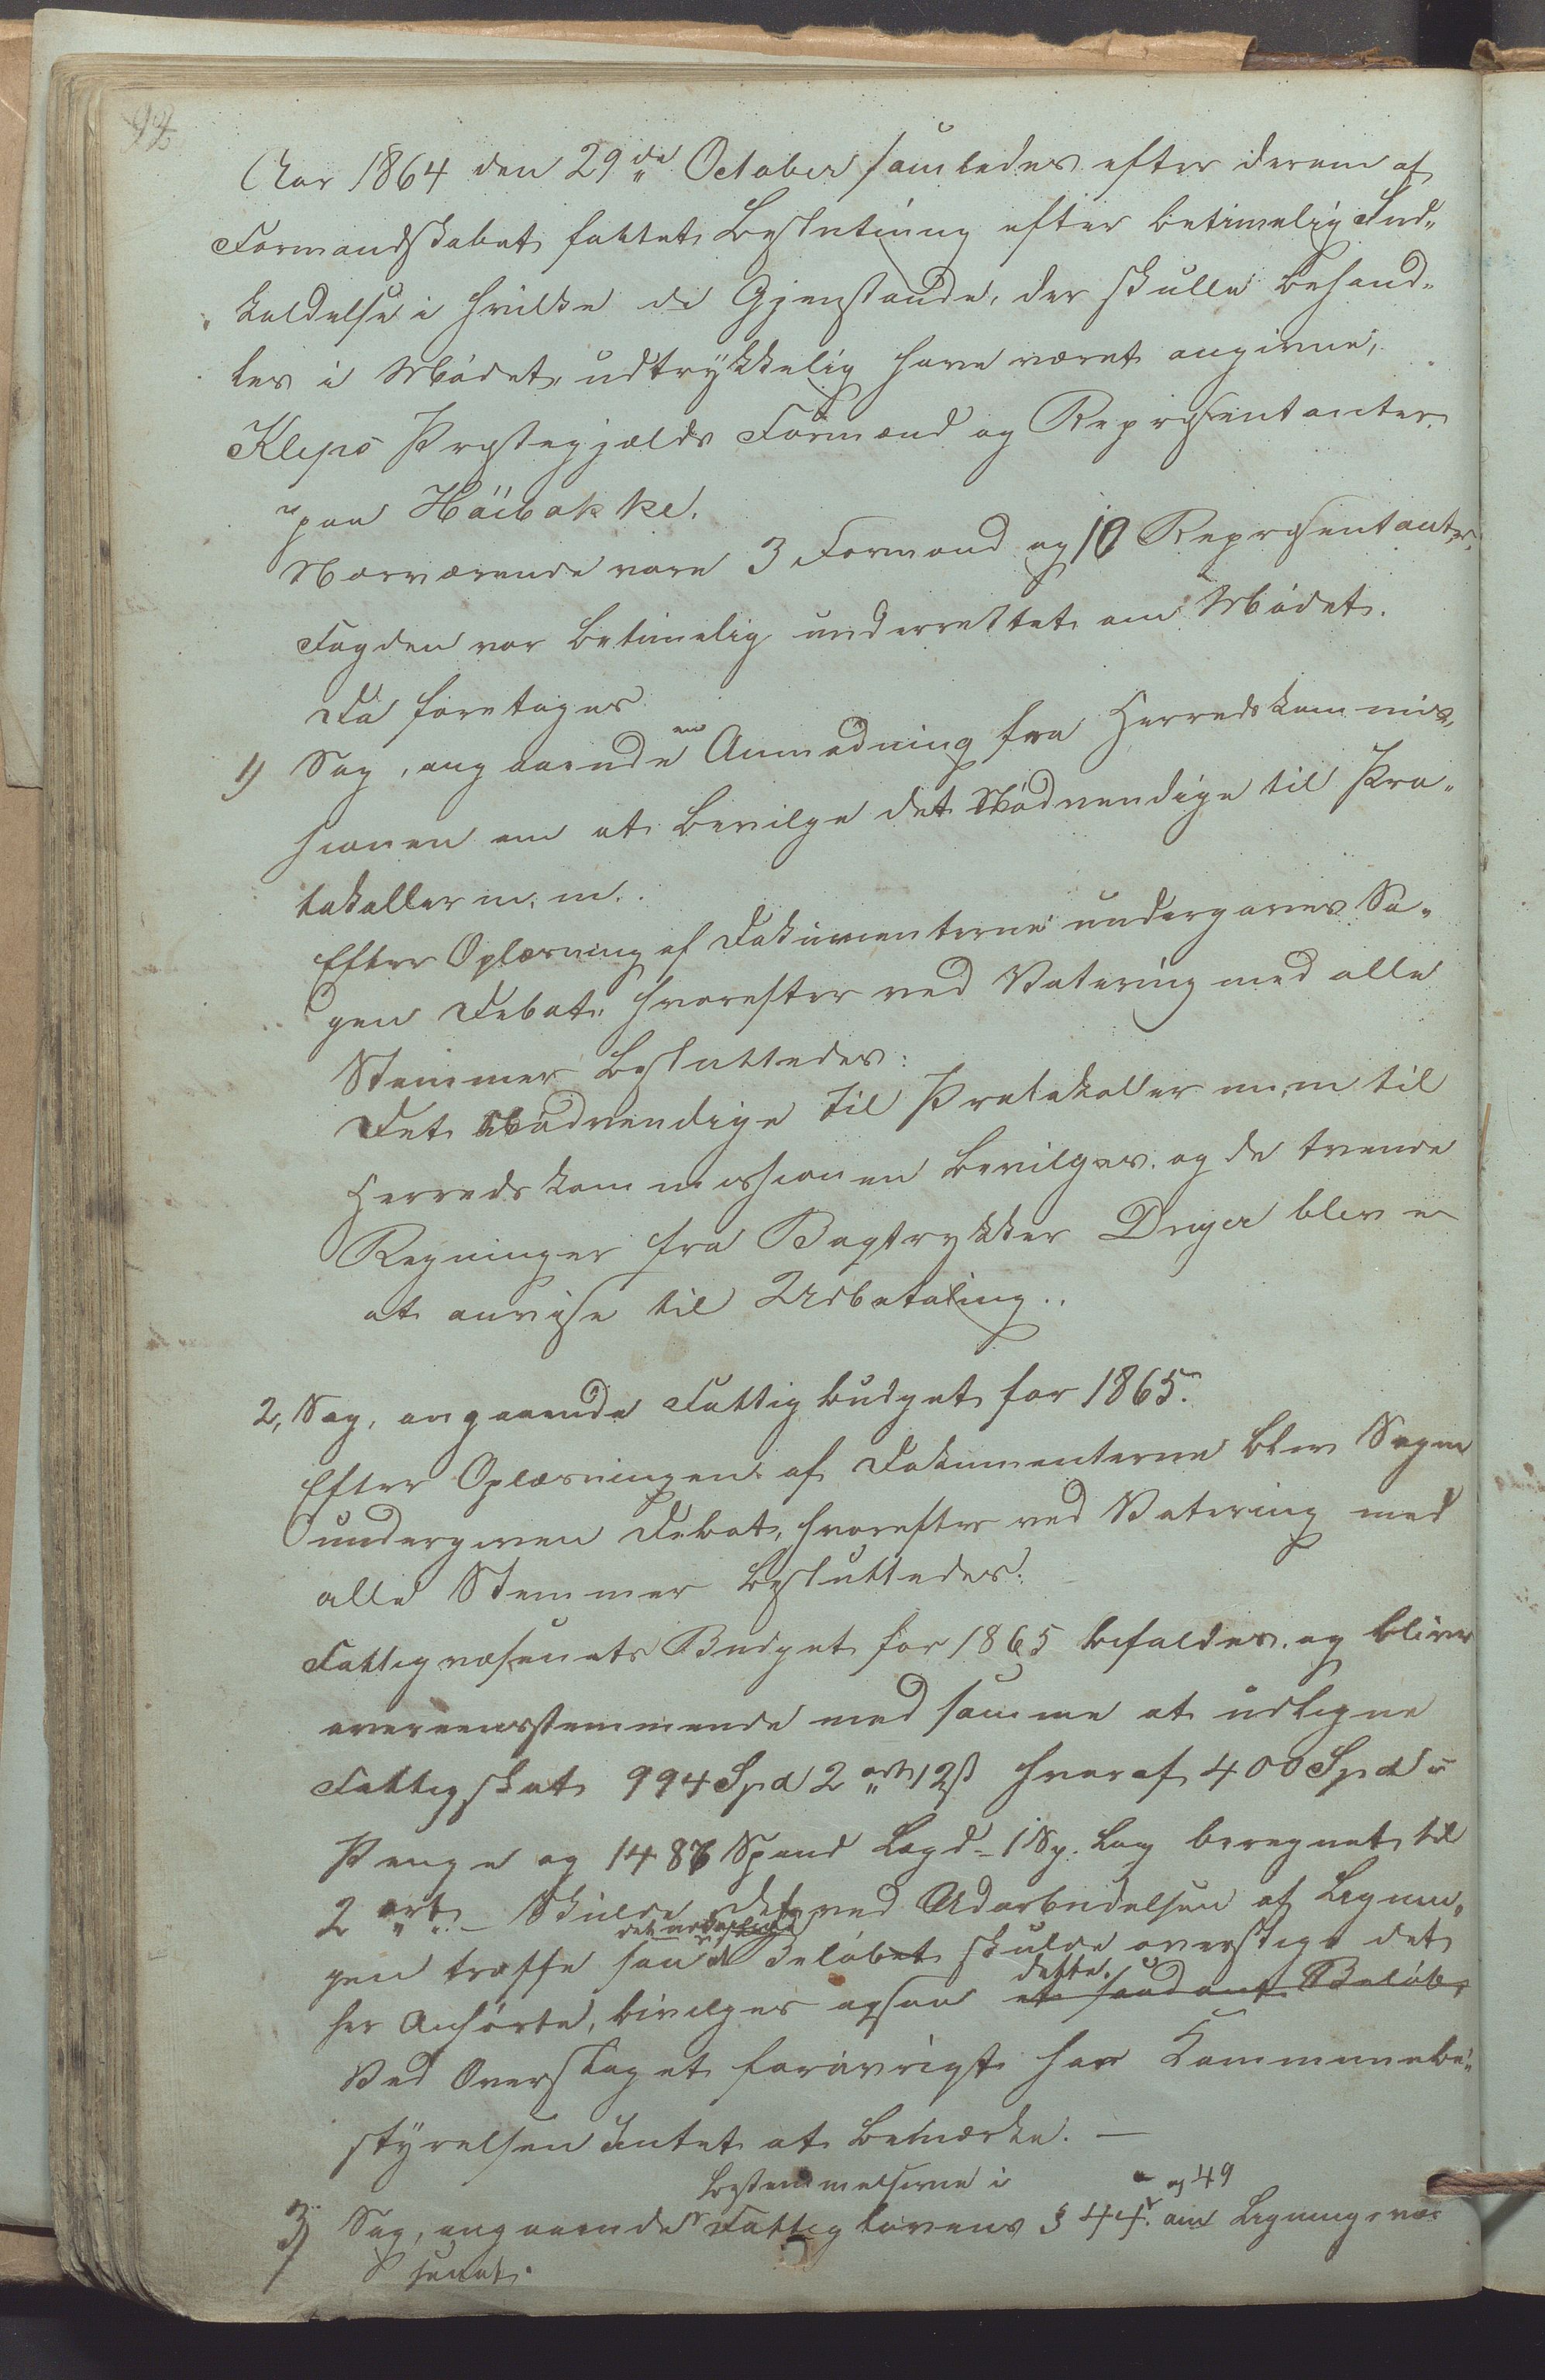 92
Aar 1864 den 29de October samledes efter derom af
Formandskabet fattet Beslutning efter betimelig Ind-
kaldelse i hvilke de Gjenstande, der skulle behand-
les i Mödet, udtrykkelig have været angivne,
Klepps Præstegjælds Formænd og Repræsentanter
paa Höibakke.
Nærværende vare 3 Formænd og 10 Repræsentanter.
Fogden var betimelig underrettet om Mödet.
Da foretoges
1) Sag, angaaende en Anmodning fra Herredskommis-
sionen om at bevilge det Nödvendige til Pro-
tokoller m. m.
Efter Oplæsning af Dokumenterne undergaves Sa-
gen Debat, hvorefter ved Votering med alle
Stemmer besluttedes:
Det Nödvendige til Protokoller m. m til
Herredskommissionen bevilges, og de tvende
Regninger fra Bogtrykker Dreyer blev
at anvise til Udbetaling..
2, Sag, angaaende Fattigbudget for 1865.
Efter Oplæsningen af Dokumenterne blev Sagen
undergiven Debat, hvorefter ved Votering med
alle Stemmer besluttedes:
Fattigvæsenets Budget for 1865 bifaldes, og bliver
overeensstemmende med samme at udligne
Fattigskat 994 Spd 2 ort 12 ß hvoraf 400 Spd i
Penge og 1486 Spand Lægd - 1 Sp. Læg beregnet til
2 ort - Skulde det ved Udarbeidelsen af Lignin-
gen træffe saa at Belöbet skulde overstige det
her Anförte, bevilges ogsaa dette. et saadant Belöb,
Ved Overslaget forövrigt har Kommunebe-
styrelsen Intet at bemærke. —
Bestemmelserne i og 49
3) Sag, angaaende Fattiglovens § 44 om Ligningsvæ-
senet.